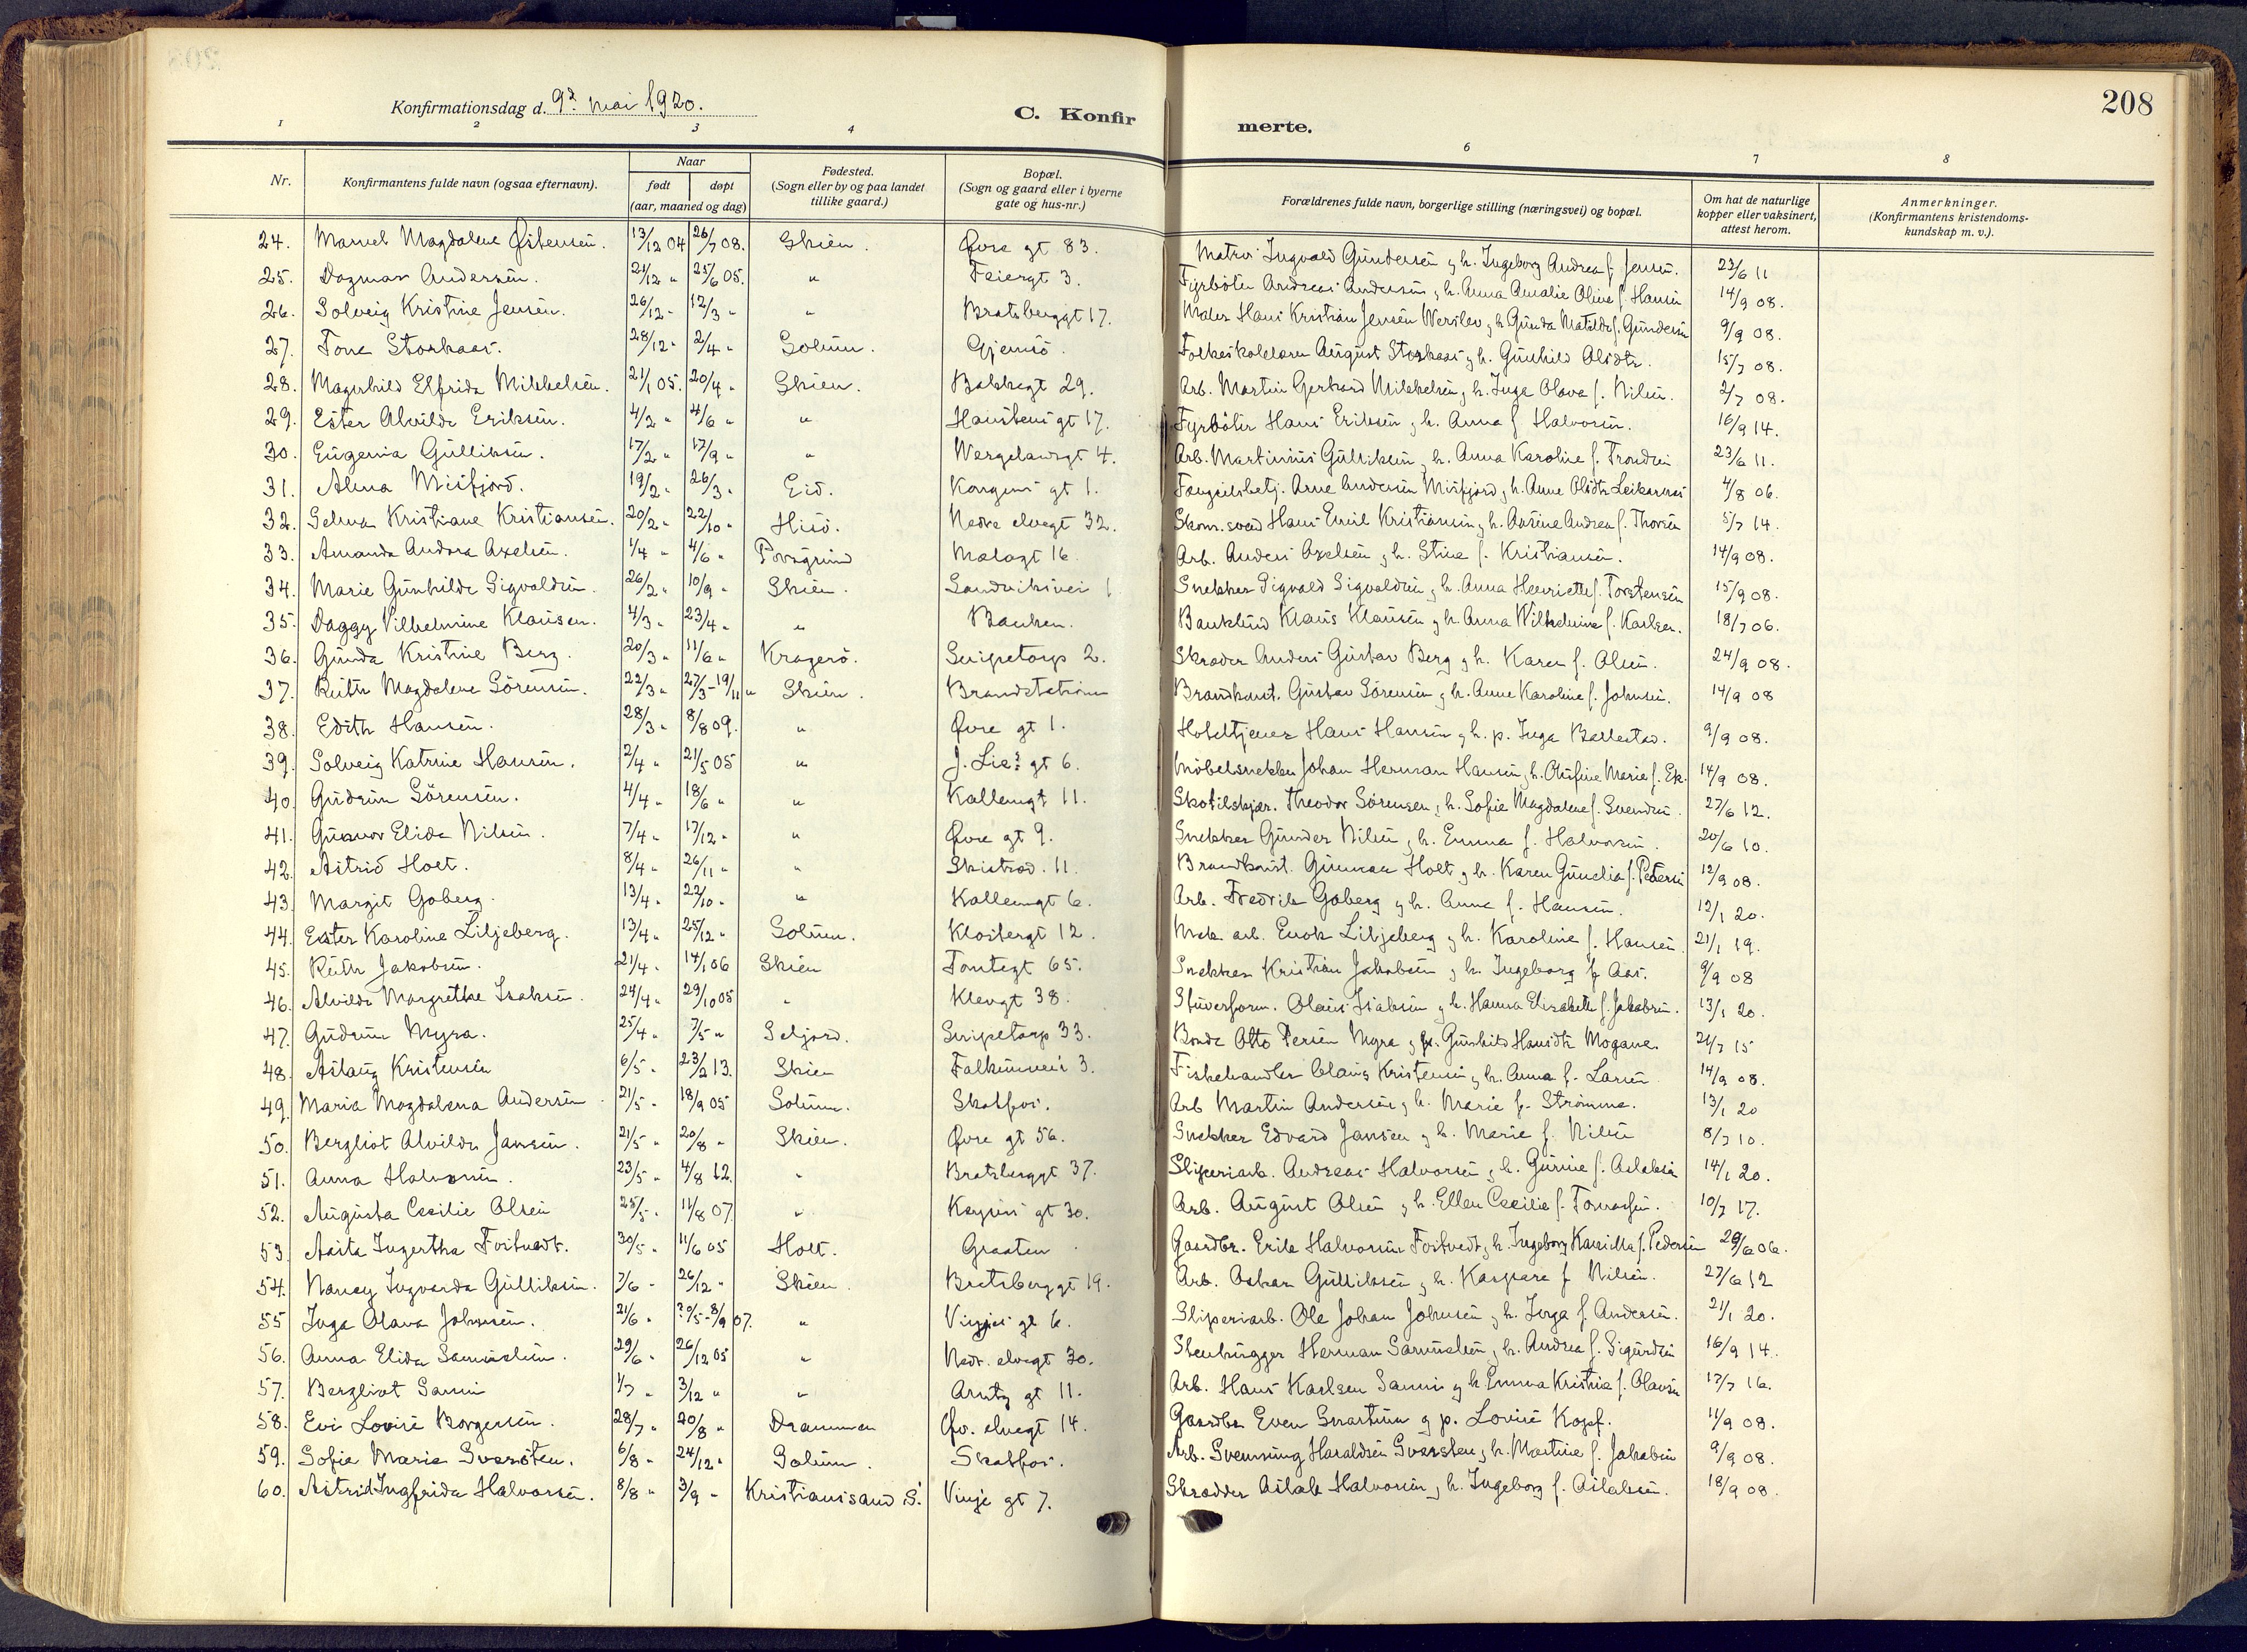 208
Konfirmationsdag d. 9? mai 1920.
C. Konfirmerte.
1 2 3 4 6 7 8
Nr.
Konfirmantens fulde navn (ogsaa efternavn).
Naar
født | døpt
(aar, maaned og dag)
Fødested.
(Sogn eller by og paa landet
tillike gaard.)
Bopæl.
(Sogn og gaard eller i byerne
gate og hus-nr.)
Forældrenes fulde navn, borgerlige stilling (næringsvei) og bopæl.
Om hat de naturlige
kopper eller vaksinert,
attest herom.
Anmerkninger.
(Konfirmantens kristendoms-
kundskap m. v.).
24. Magdalene 13/12 04 26/7 08. Skien. Øvre gt 83. Ingvald Gundersen g h. Ingeborg Andrea f. Jensen. 23/6 11
25. Dagmar Andersen. 21/12 " 25/6 05. " Feiergt 3. Fyrbøter Andreas Andersen g h. Anna Amalie Oline f. Hansen 14/9 08.
26. Solveig Kristine Jensen. 26/12 " 12/3 " " Bratsberggt 17. Maler Hans Kristian Jensen Werslev g h. Gunda Matilde f. Gundersen 9/9 08.
27. Tone Storkaas. 28/12 " 2/4 " Solum. Gjemsö. Folkeskolelærer August Storkaas g h. Gunhild Olsdtr. 15/7 08.
28. Magnhild Elfrida Mikkelsen. 21/1 05. 20/4 " Skien. Bakkegt 29. Arb. Martin Gerhard Mikkelsen g h. Inga Olava f. Nilsen. 2/7 08.
29. Ester Alvilde Eriksen. 4/2 " 4/6 " " gt 17. Fyrböter Hans Eriksen g h. Anna f Halvorsen. 16/9 14.
30. Eugenia Gulliksen. 17/2 " 17/9 " " Wergelandsgt 4. Arb. Martinius Gulliksen g h. Anna Karoline f. Trondsen 23/6 11.
31. Alma Misfjord. 19/2 " 26/3 " Eid. Kongens gt 1. Fængselsbetj. Arne Andersen Misfjord g h. Anne Olsdtr Leikarnes 4/8 06.
32. Selma Kristiane Kristiansen. 20/2 " 22/10 " Hisö. Nedre elvegt 32. Skom. svend Hans Emil Kristiansen g h. Andrea f. Thorsen 5/7 14.
33. Amanda Andora Axelsen. 1/4 " 4/6 " Porsgrund Mælagt 16. Arb. Anders Axelsen g h. Stine f. Kristiansen. 14/9 08.
34. Marie Gunhilde Sigvaldsen. 26/2 " 10/9 " Skien. Landviksvei 1 Snekker Sigvald Sigvaldsen g h. Anna Henriette f. Torstensen 15/9 08.
35. Daggy Vilhelmine Klausen. 4/3 " 23/4 " " Banken. Bankbud Klaus Klausen g h. Anna Wilhelmine f. Karlsen. 18/7 06.
36. Gunda Kristine Berg. 20/3 " 11/6 " Kragerö. Snipetorp 2. Skræder Anders Gustav Berg g h. Karen f. Olsen. 24/9 08.
37. Ruth Magdalene Sörensen. 22/3 " 27/3-19/11 " Skien. Brandstation Brandkonst. Gustav Sörensen g h. Anne Karoline f. Johnsen. 14/9 08
38. Edith Hansen. 28/3 " 8/8 09. " Øvre gt 1. Hoteltjener Hans Hansen g h. p. Inga Ballestad. 9/9 08.
39. Solveig Katrine Hansen. 2/4 " 21/5 05 " J. Lies gt 6. Möbelsnekker Johan Herman Hansen g h. Olufine Marie f. Ek. 14/9 08.
40. Gudrun Sörensen. 4/4 " 18/6 " " Kallemgt 11. Skotilskjær. Theodor Sörensen g h. Sofie Magdalene f. Svendsen. 27/6 12.
41. Gunvor Elida Nilsen. 7/4 " 17/12 " " Øvre gt 9. Snekker Gunder Nilsen g h. Emma f. Halvorsen. 20/6 10.
42. Astrid Holt. 8/4 " 26/11 " " Skistrød. 11. Brandkonst. Gunnar Holt g h. Karen Gunelia f. Pedersen 12/9 08.
43. Margit Goberg. 13/4 " 22/10 " " Kallemgt 6. Arb. Fredrik Goberg g h. Anna f. Hansen. 12/1 20.
44. Ester Karoline Liljeberg. 13/4 " 25/12 " Solum. Klostergt 12. Mek. arb. Enok Liljeberg g h. Karoline f. Hansen. 21/1 19.
45. Ruth Jakobsen. 21/4 " 14/1 06 Skien Tomtegt 65. Snekker Kristian Jakobsen g h. Ingeborg f. Aas. 9/9 08
46. Alvilde Margrethe Isaksen. 24/4 " 29/10 05 " Klevgt 38. Stuverform. Olaus Isaksen g h. Hanna Elisabeth f. Jakobsen. 13/1 20.
47. Gudrun Myra. 25/4 " 7/5 " Seljord. Snipetorp 33. Bonde Otto Persen Myra g h. Gunhild Hansdtr Mogane. 21/7 15
48. Aslaug Kristensen 6/5 " 23/2 13. Skien Falkumvei 3. Fiskehandler Olaus Kristensen g h. Anna f. Larsen. 14/9 08.
49. Maria Magdalena Andersen 21/5 " 18/9 05 Solum. Skotfos. Arb Martin Andersen g h. Marie f. Strömme. 13/1 20
50. Bergliot Alvilde Jansen. 21/5 " 20/8 " Skien. Øvre gt 56. Snekker Edvard Jansen g h. Marie f. Nilsen 8/7 10.
51. Anna Halvorsen. 23/5 " 4/8 12. " Bratsberggt 37. Sliperiarb. Andreas Halvorsen g h. Gurine f. Aslaksen 14/1 20.
52. Augusta Cecilie Olsen 25/5 " 11/8 07. " gt 30. Arb. August Olsen g h. Ellen Cecilie f. Tomassen. 10/7 17.
53. Asita Ingertha Fostvedt. 30/5 " 11/6 05 Holt. Graaten. Gaardbr. Erik Halvorsen Fostvedt g h. Ingeborg f. Pedersen 29/6 06.
54. Nancy Ingvarda Gulliksen. 7/6 " 26/12 " Skien. Bratsberggt 19. Arb. Oskar Gulliksen g h. Kaspara f Nilsen. 27/6 12
55 Inga Olava Johnsen. 21/6 " 20/5-8/9 07. " Vinjes gt 6. Sliperiarb. Ole Johan Johnsen g h. Inga f. Andersen. 21/1 20.
56. Anna Elida Samuelsen. 29/6 " 26/12 05 " Nedr. elvegt 30. Stenhugger Herman Samuelsen g h. Andrea f. Sigurdsen 16/9 14.
57. Bergliot Sanni 1/7 " 3/12 " " Arntz gt 11. Arb. Hans Karlsen Sanni g h. Emma Kristine f. Olavsen 17/7 16.
58. Evi Lovise Borgersen. 28/7 " 20/8 " Drammen Øv. elvegt 14. Gaardbr. Even g p. Lovise Kopf. 11/9 08.
59. Sofie Marie Sversten. 6/8 " 24/12 " Solum. Skotfos. Arb. Svenning Haraldsen Sversten g h. Martine f. Jakobsen 9/9 08.
60. Astrid Ingfrida Halvorsen. 8/8 " 3/9 " Kristianssand S. Vinje gt 7. Skrædder Aslak Halvorsen g h. Ingeborg f. Aslaksen. 18/9 08.